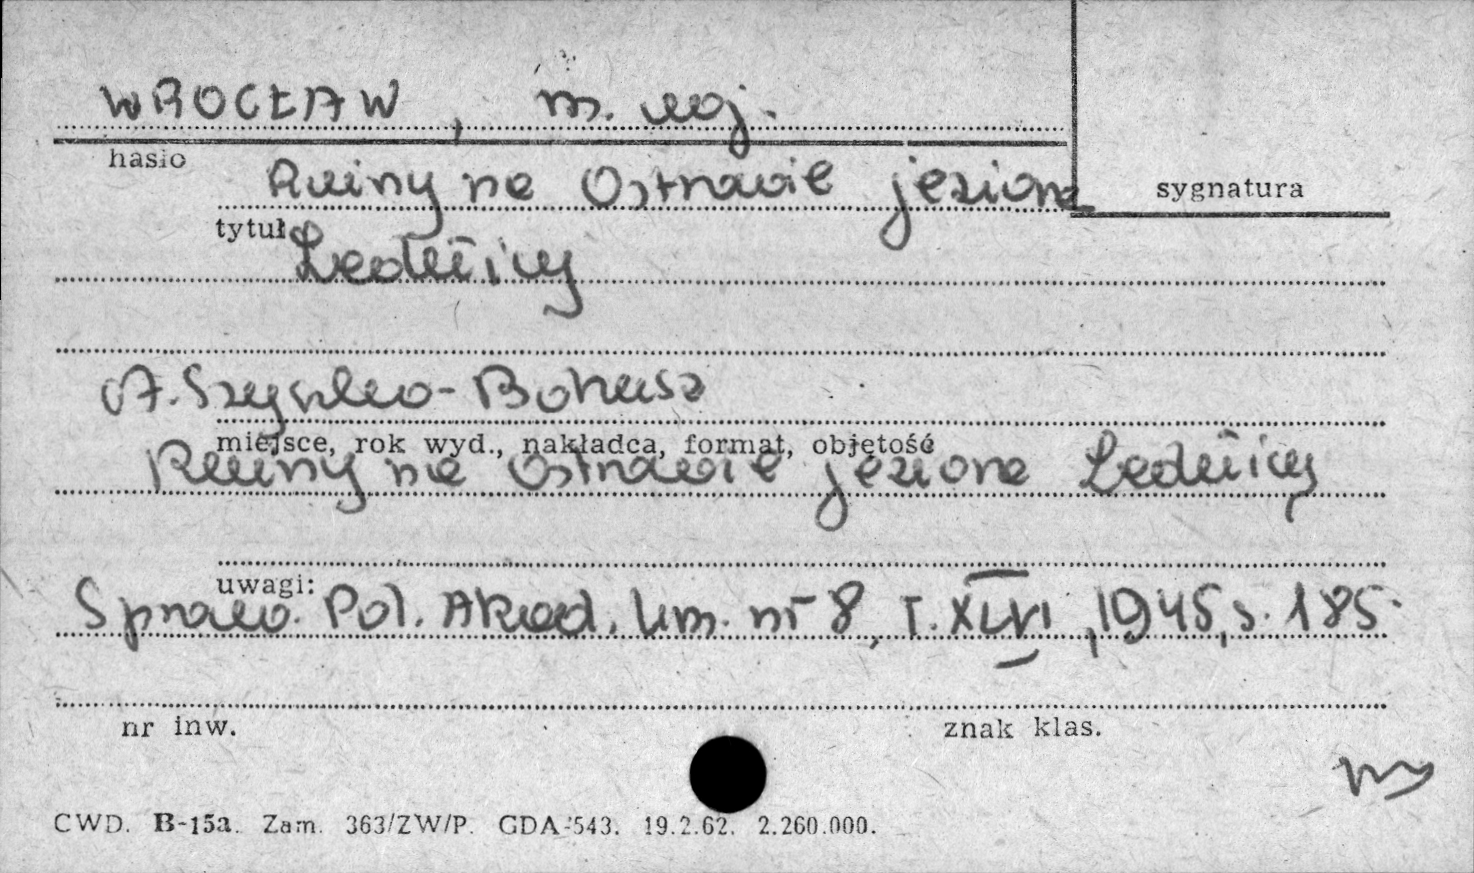 WROCŁAW, m. woj.
hasło
Ruiny na Ostrowie jeziora
sygnatura
tytuł
Lednicy
A. Szyszko-Bohusz
miejsce, rok wyd., nakładca, format, objętość
Ruiny na Ostrowie jeziora Lednicy
uwagi:
Sprawo. Pol. Akad. Um. nr 8, T. XLVI, 1945, s. 185.
nr inw.
znak klas.
CWD. B-15a. Zam. 363/ZW/P. GDA-543. 19.2.62. 2.260.000.